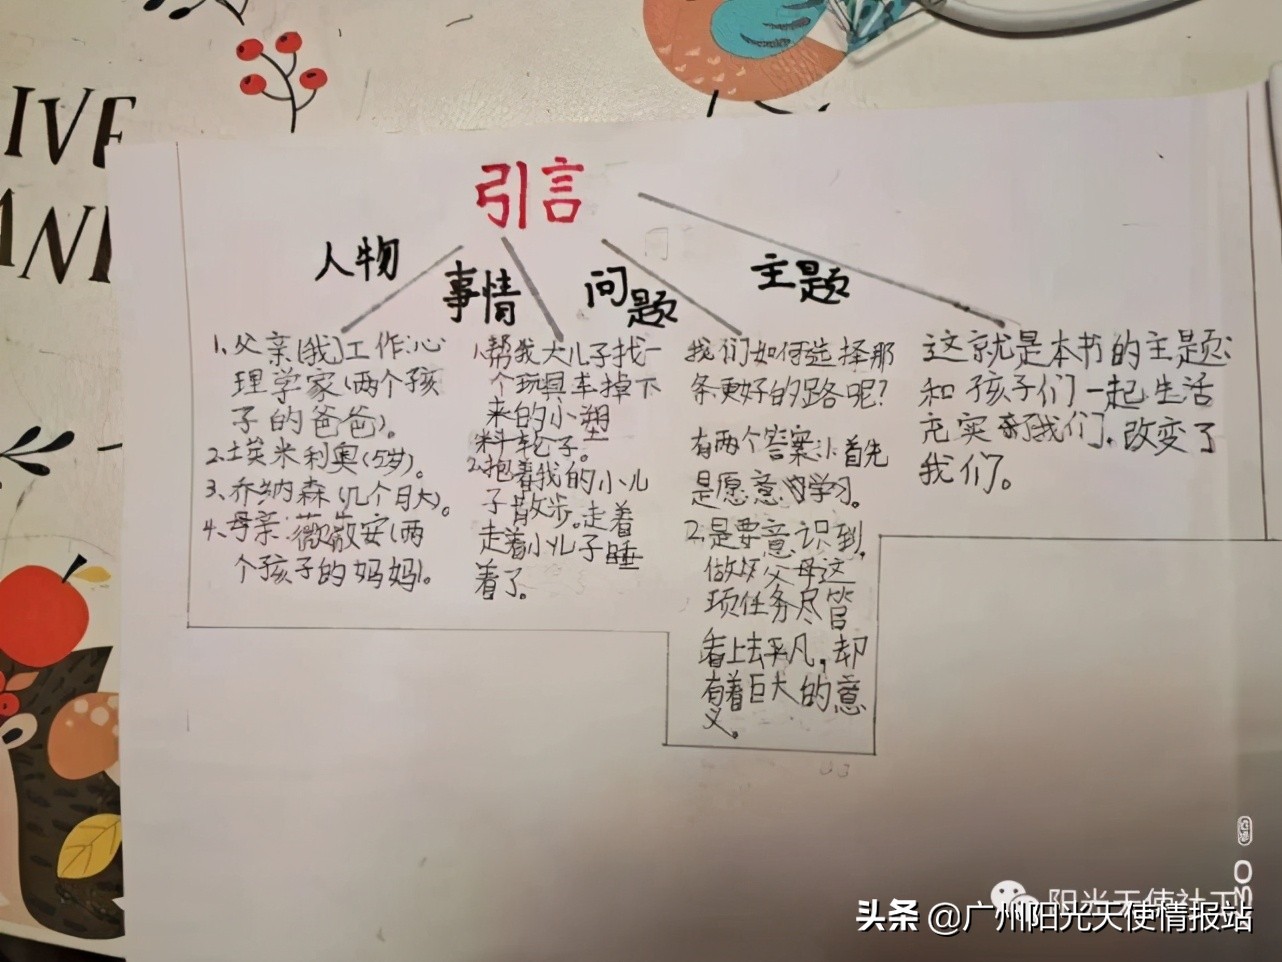 IVE
ANI
引言
人物
事情
问题
主题
1、父亲[我]工作:心
理学家(两个孩
子的爸爸)。
2.埃米利奥(5岁)。
3、乔纳森(几个月大)。
4、母亲:薇薇安(两
个孩子的妈妈)。
1、帮我大儿子找一
个玩具车掉下
来的小塑
料轮子。
2.抱着我的小儿
子散步。走着
走着小儿子睡
着了。
我们如何选择那
条更好的路呢?
有两个答案:1.首先
是愿意学习。
2.是要意识到,
做好父母这
项任务尽管
看上去平凡,却
有着巨大的意
义。
这就是本书的主题:
和孩子们一起生活
充实了我们,改变了
我们。
阳光天使社工
头条 @广州阳光天使情报站